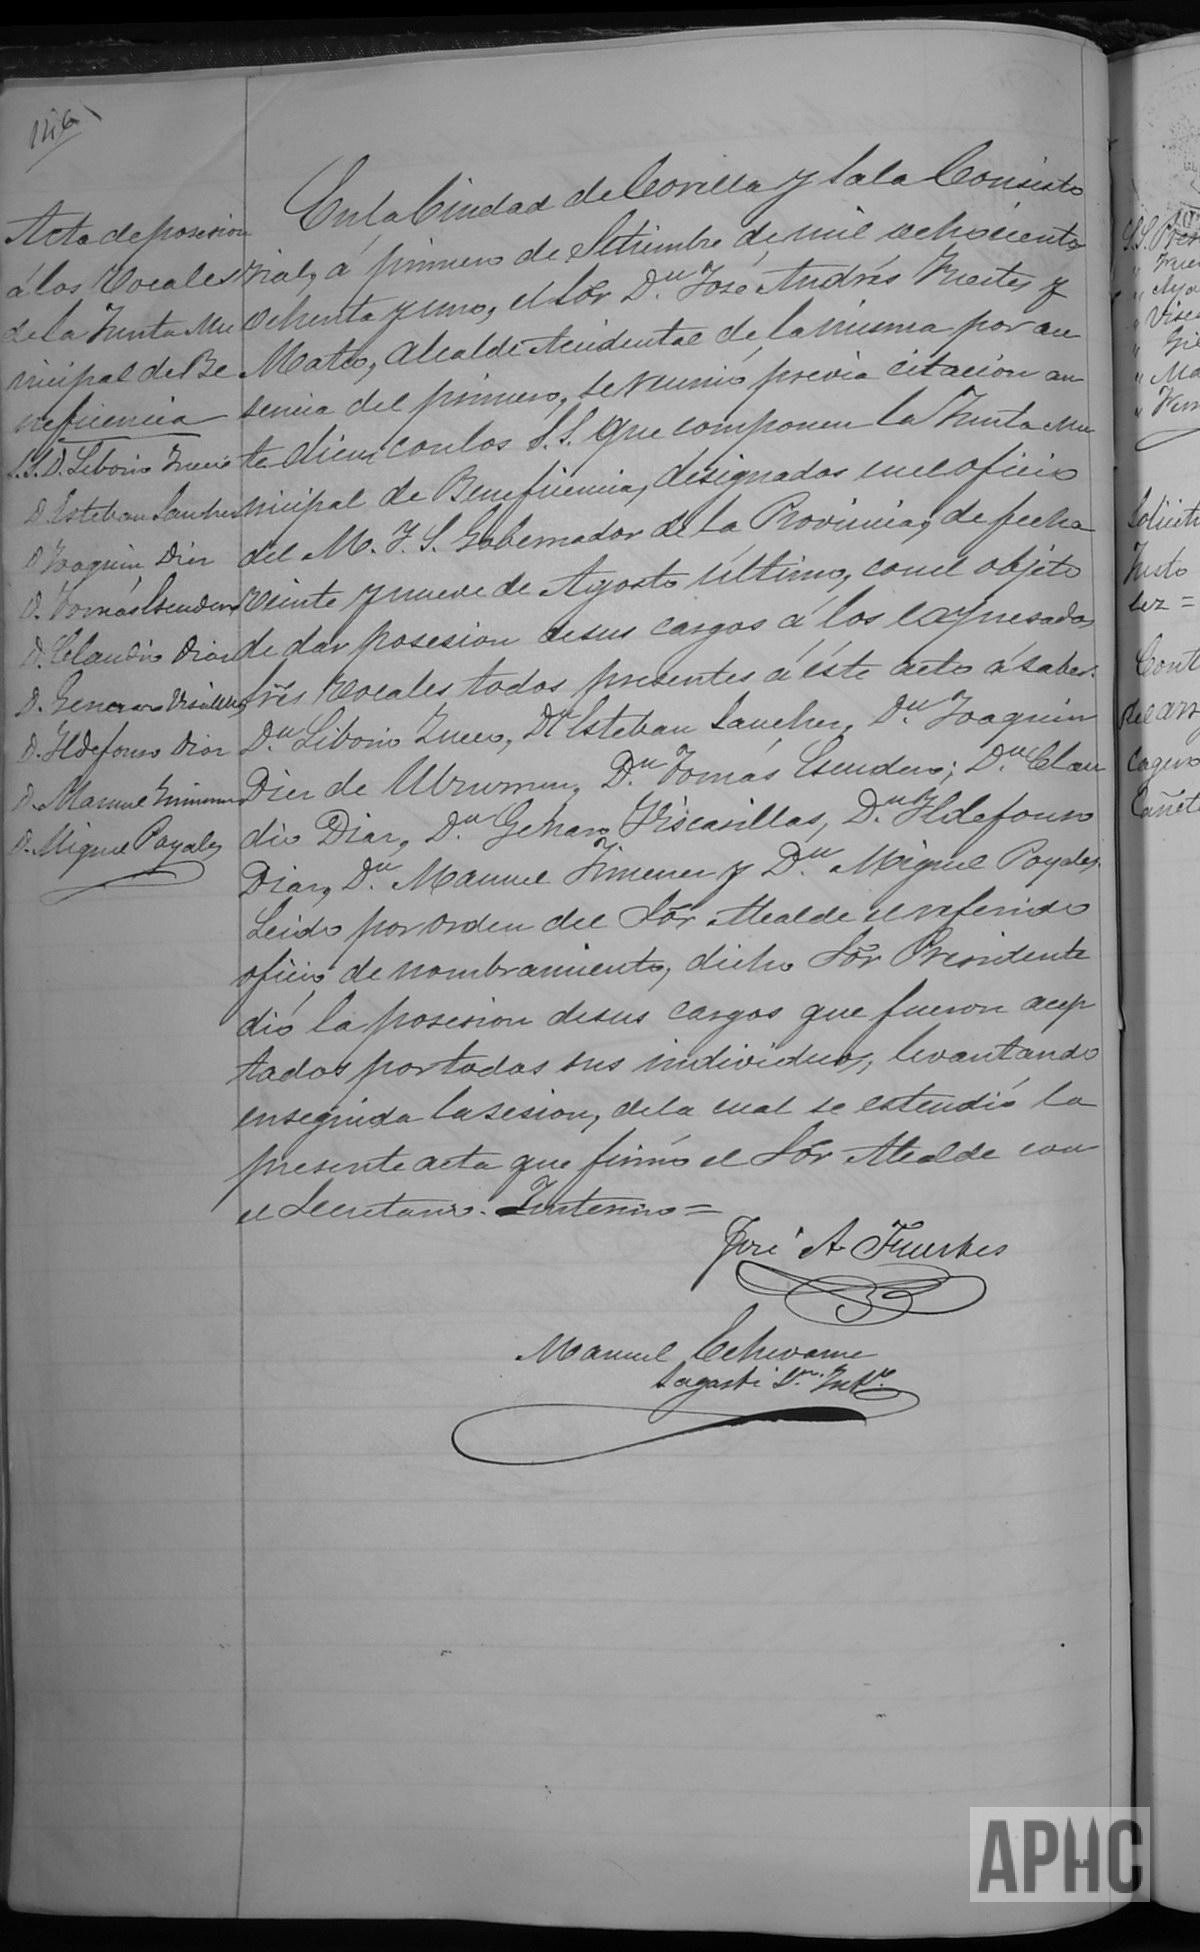 126
Acta de posesion
á los Vocales
de la Junta Mu
nicipal de Be
neficencia
S.S. D. Liborio
D. Esteban Sanchez
D. Joaquin Diez
D. Tomás Escudero
D. Claudio Diaz
D. Genaro Viscasillas
D. Yldefonso Diaz
D. Manuel Jimenez
D. Miguel Poyales
En la Ciudad de Corella y Sala Consisto
rial, á primero de Setiembre de mil ochocientos
ochenta y uno, el Sõr Dn. José Andrés Fuertes y
Mateo, Alcalde Accidental de la misma por au
sencia del primero, se reunió previa citacion an
te diem con los S.S. que componen la Junta Mu
nicipal de Beneficencia, designados en el oficio
del M. Y. S. Gobernador de la Provincia, de fecha
veinte y nueve de Agosto último, con el objeto
de dar posesion de sus cargos á los expresados
Sres Vocales todos presentes á éste acto á saber:
Dn. Liborio, Dn. Esteban Sanchez, Dn. Joaquin
Diez de Ulzurrun, Dn. Tomás Escudero; Dn. Clau
dio Diaz, Dn. Genaro Viscasillas, Dn. Yldefonso
Diaz, Dn. Manuel Jimenez y Dn. Miguel Poyales.
Leido por orden del Sõr Alcalde el referido
oficio de nombramiento, dicho Sõr Presidente
dió la posesion de sus cargos que fueron acep
tados por todos sus individuos, levantando
enseguida la sesion, de la cual se estendió la
presente acta que firmó el Sõr Alcalde con
el Secretario. Interino=
José A Fuertes
Manuel Echevarne
Sagasti Srio. Intº.
S.S. Pres
"
"
" Visc
"
" Ma
"
Solicit
Justo
lez =
Cont
del arr
Cañet
APHC